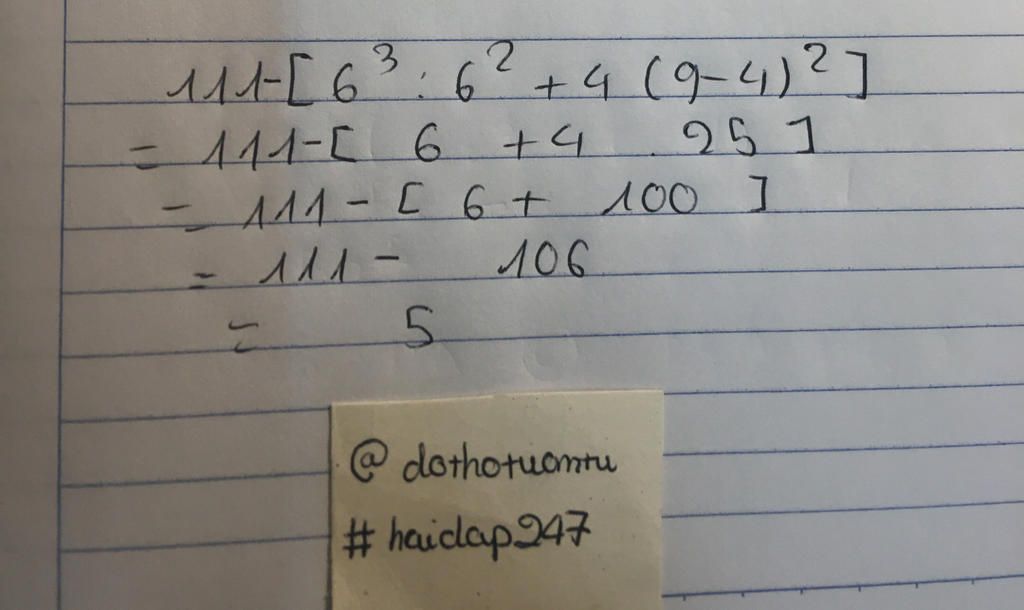 111-[ 6³ : 6² + 4 (9-4)² ]
= 111-[ 6 + 4 . 25 ]
= 111 - [ 6 + 100 ]
= 111 - 106
= 5
@ dothotuomtu
# haidap247